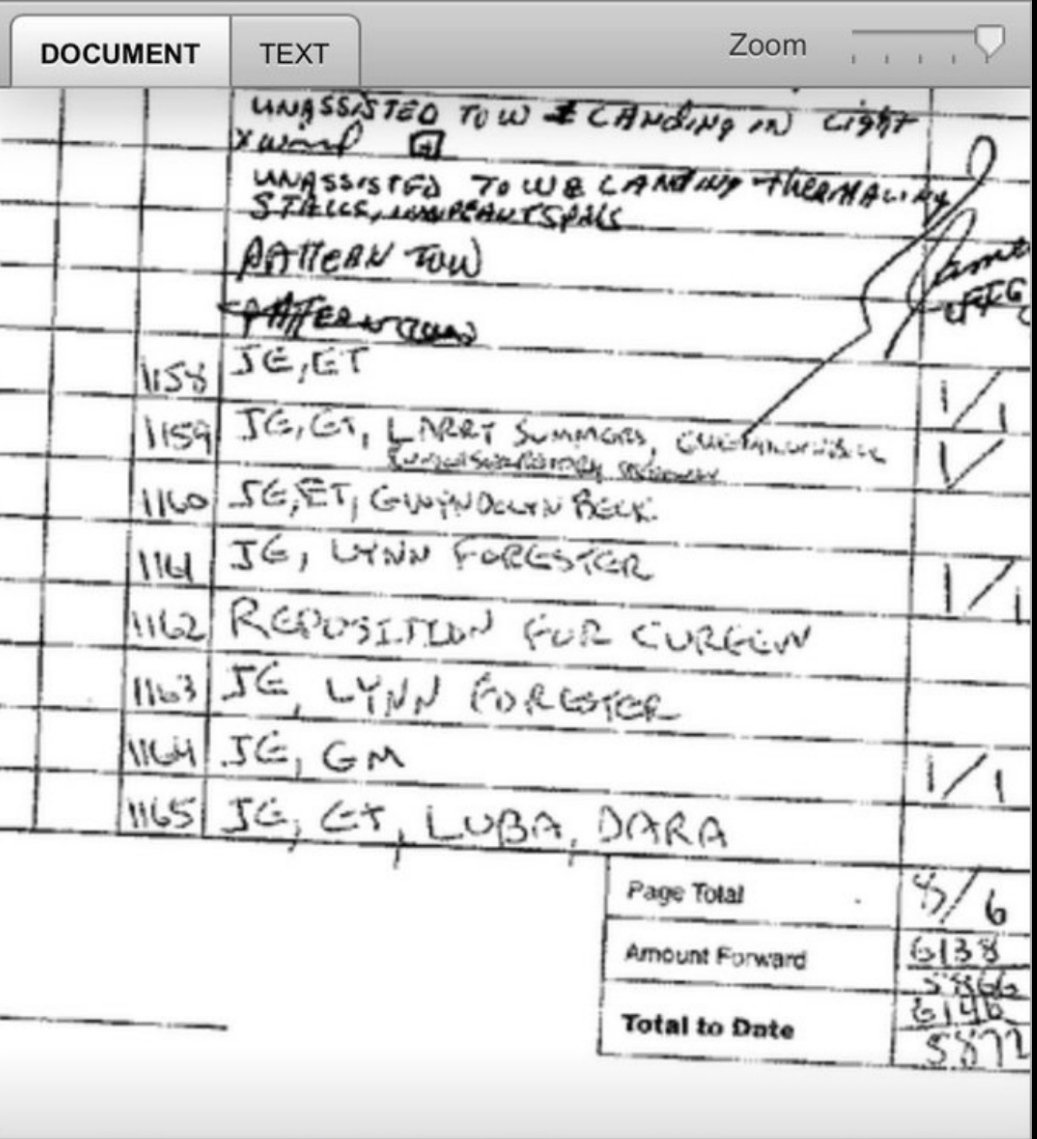 DOCUMENT TEXT Zoom
UNASSISTED TOW & LANDING IN LIGHT
X wind
UNASSISTED TOW & LANDING THERMALING
STALLS,
PATTERN TOW
PATTERN TOW
1158 JE, ET 1/1
1159 JE, ET, LARRY SUMMERS,
1160 JE, ET, GWYNDOLYN BECK
1161 JE, LYNN FORESTER 1/1
1162 REPOSITION FOR CURFEW
1163 JE, LYNN FORESTER
1164 JE, GM 1/1
1165 JE, ET, LUBA, DARA
Page Total 8/6
Amount Forward 6138
5866
Total to Date 6146
5872